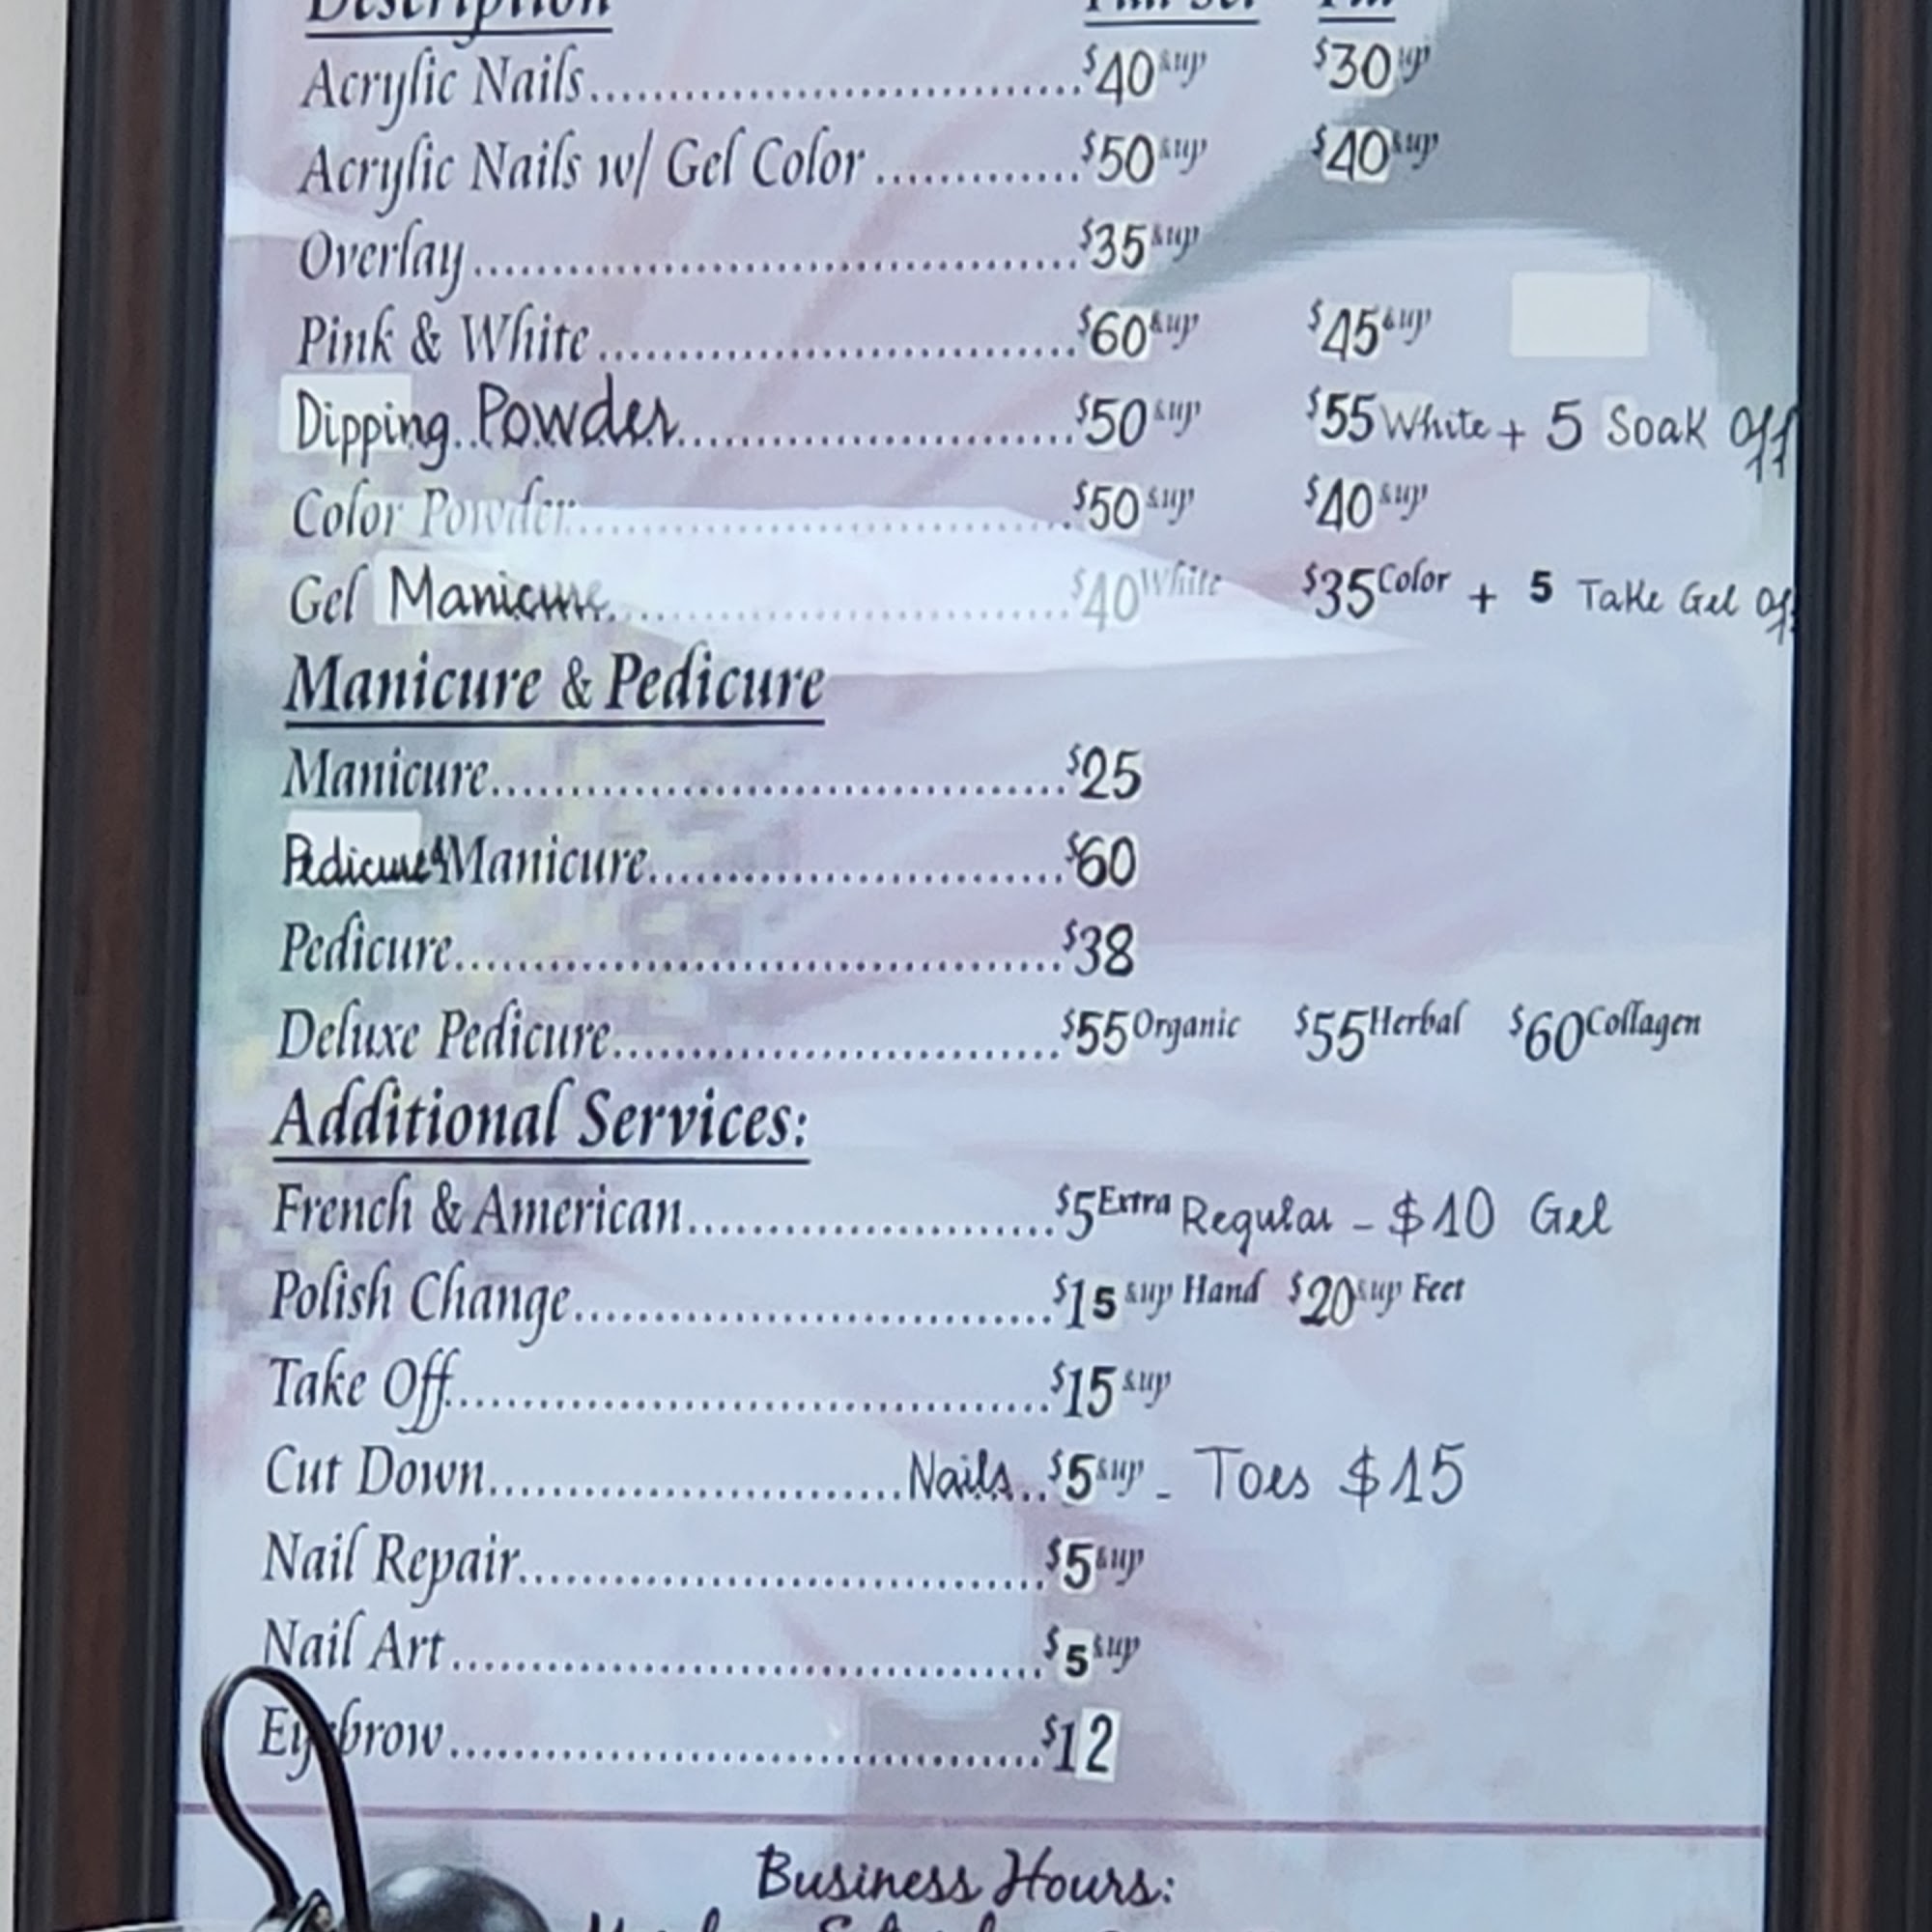 Description Full Set Fill
Acrylic Nails.............................. $40 &up $30 up
Acrylic Nails w/ Gel Color ............. $50 &up $40 &up
Overlay...................................... $35 &up
Pink & White.............................. $60 &up $45 &up
Dipping Powder......................... $50 &up $55 White + 5 Soak Off
Color Powder............................... $50 &up $40 &up
Gel Manicure............................. $40 White $35 Color + 5 Take Gel Off
Manicure & Pedicure
Manicure.................................... $25
Pedicure & Manicure.......................... $60
Pedicure...................................... $38
Deluxe Pedicure............................ $55 Organic $55 Herbal $60 Collagen
Additional Services:
French & American....................... $5 Extra Regular - $10 Gel
Polish Change.............................. $15 &up Hand $20 &up Feet
Take Off..................................... $15 &up
Cut Down.......................... Nails.. $5 &up - Toes $15
Nail Repair................................. $5 &up
Nail Art..................................... $5 &up
Eyebrow..................................... $12
Business Hours: